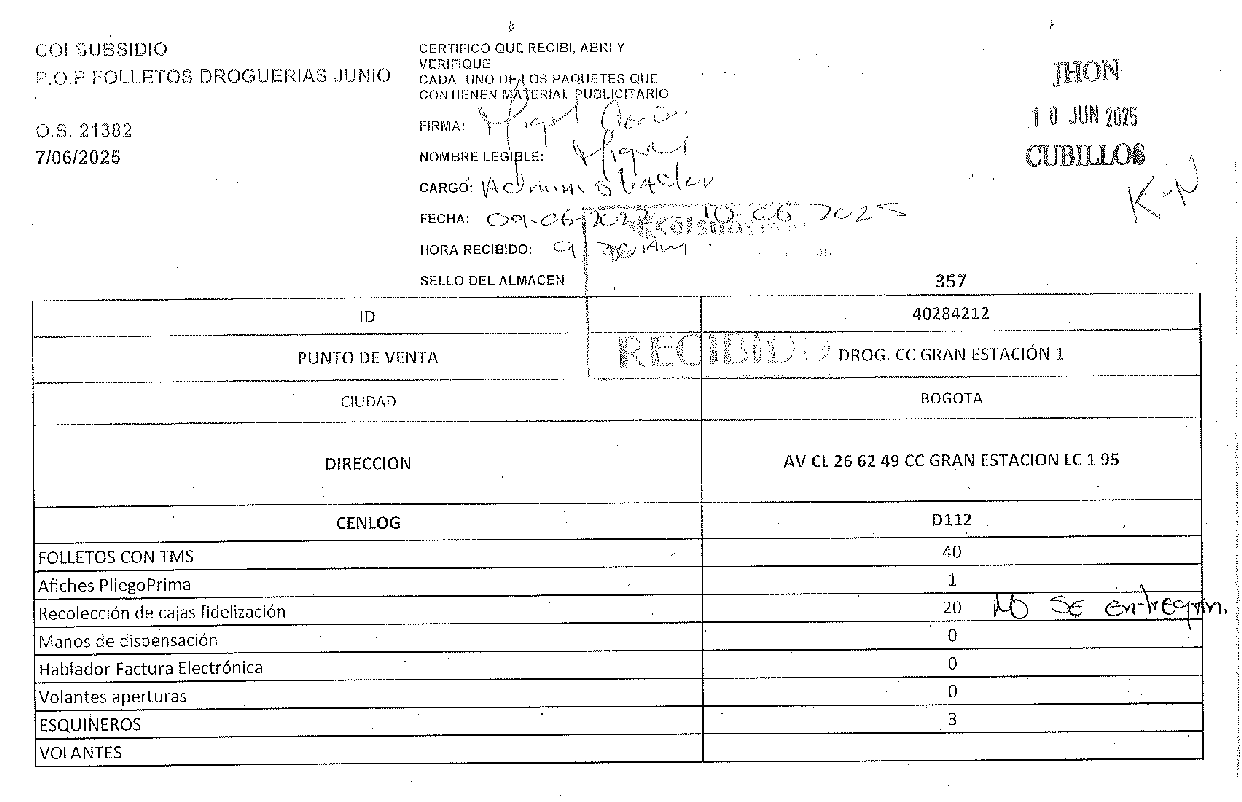 COLSUBSIDIO
P.O.P FOLLETOS DROGUERIAS JUNIO
O.S. 21382
7/06/2025
CERTIFICO QUE RECIBI, ABRI Y
VERIFIQUE
CADA UNO DE LOS PAQUETES QUE
CONTIENEN MATERIAL PUBLICITARIO
FIRMA: Miguel
NOMBRE LEGIBLE: Miguel
CARGO: Administrador
FECHA: 10-06 2025
HORA RECIBIDO: 9:30 Am
SELLO DEL ALMACEN
JHON
10 JUN 2025
CUBILLOS
K-N
Colsubsidio
357
RECIBIDO
ID 40284212
PUNTO DE VENTA DROG. CC GRAN ESTACIÓN 1
CIUDAD BOGOTA
DIRECCION AV CL 26 62 49 CC GRAN ESTACION LC 1 95
CENLOG D112
FOLLETOS CON TMS 40
Afiches PliegoPrima 1
Recolección de cajas fidelización 20 No SE entregan.
Manos de dispensación 0
Hablador Factura Electrónica 0
Volantes aperturas 0
ESQUINEROS 3
VOLANTES